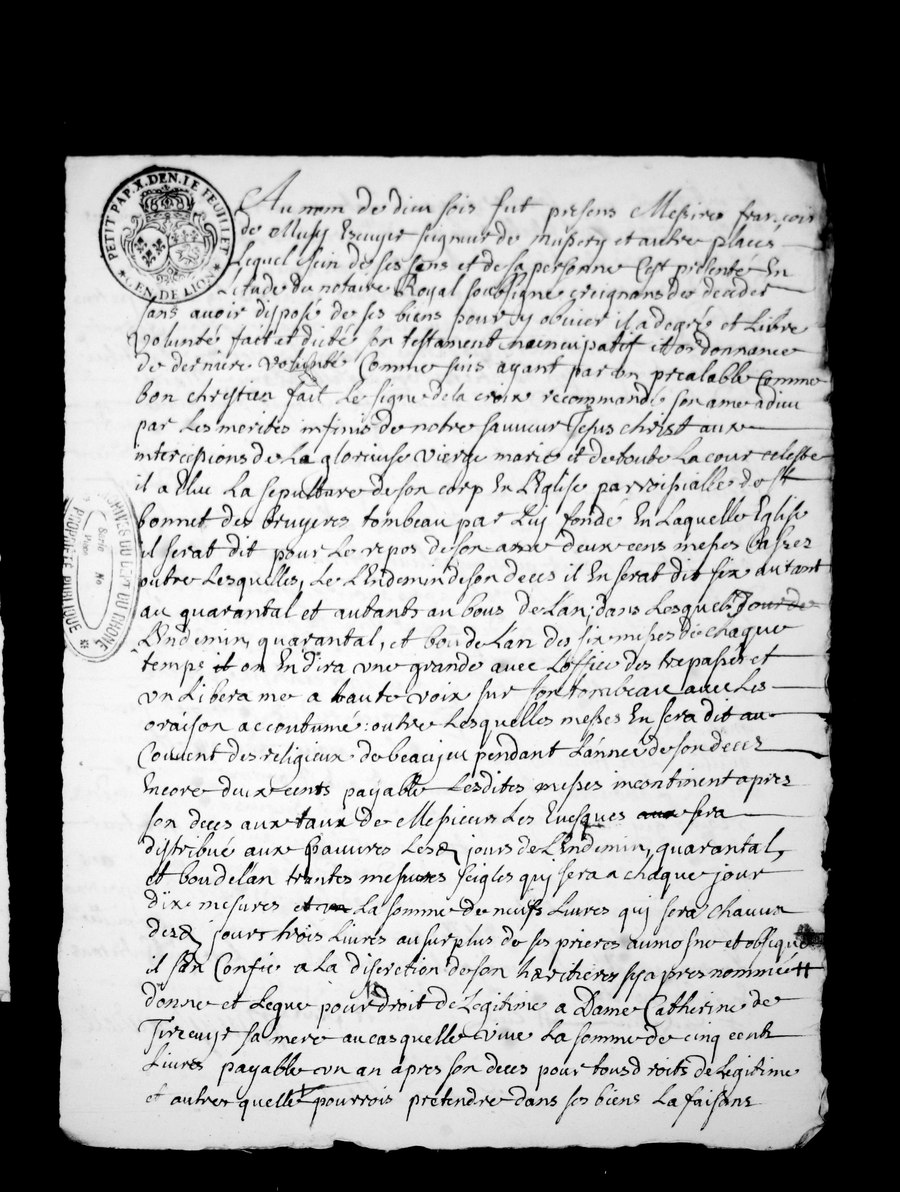 PETIT PAP. X. DEN. LE FEUILLET
GEN DE LION
Au nom de dieu sois fut presens Messire françois
de Escuyer seigneur de et autre places
Lequel sein de ses sens et de sa personne C'est présenté En
L'étude du notaire Royal soubsigne creignans de deceder
sans avoir disposé de ses biens pour y obvier il a de gré et Libre
volunté fait et dicté son testament nuncupatif et ordonnance
de derniere volonté Comme suis ayant par un prealable Comme
bon chrestien fait Le signe de la croix recommandé son ame a dieu
par Les merites infinis de notre sauveur Jesus christ aux
intercessions de La glorieuse vierge marie et de toute La cour celeste
il a Eluc La sepulture de son corp En L'Eglise parroissialle de St
bonnet des bruyeres tombeau par Luy fondé En Laquelle Eglise
il serat dit pour Le repos de son ame deux cens messes basses
outre Lesquelles, Le L'Endemin de son deces il En serat dit six autant
au quarantal et autants au bous de L'an; dans Lesquels Jour de
L'Endemin, quarantal, et bou de L'an des six messes de chaque
temps it on En dira une grande avec L'office des trepassés et
un Libera me a haute voix sur son tombeau avec Les
oraison accoutumé: outre Lesquelles messes En sera dit au
Couvent des religieux de beaujeu pendant L'année de son deces
Encore deux cents payable Lesdites messes incontinent apres
son deces aux taux de Messieurs Les Evesques aux sera
distribué aux pauvres Les jours de L'Endemin, quarantal,
et bou de lan trentes mesures seigles qui sera a chaque jour
dix mesures et La somme de neufs Livres qui sera chaucun
desd jours trois Livres au surplus de ses prieres aumosne et obseque
il s'an Confie a La discretion de son haeritieres sy apres nommée
donne et Legue pour droit de Legitime a Dame Catherine de
sa mere au cas quelle vive La somme de cinq cents
Livres payable un an apres son deces pour tous droits de Legitime
et autres quelle pourrois pretendre dans ses biens La faisans
ARCHIVES DU DEPT DU RHONE
PROPRIÉTÉ PUBLIQUE
Série
No